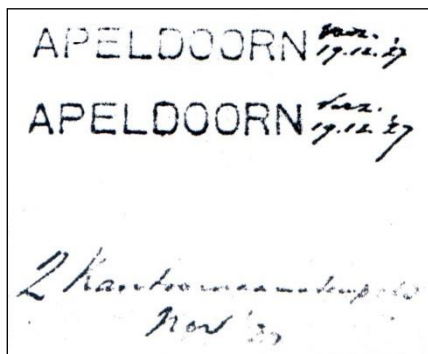 APELDOORN verz.
19.12.27
APELDOORN verz.
19.12.27
2 Kantoornaamstempels
Nov '27